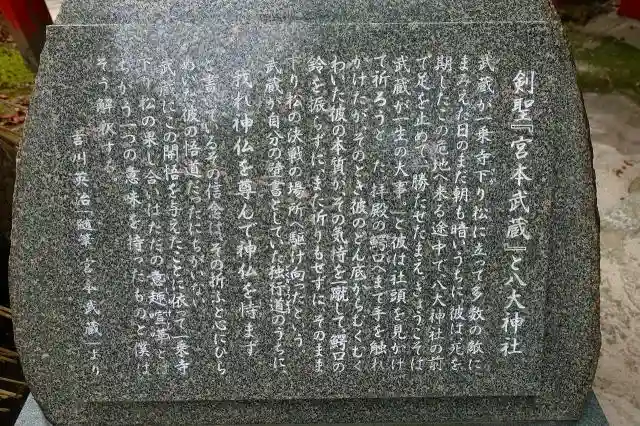 剣聖『宮本武蔵』と八大神社
武蔵が一乗寺下り松に立って多数の敵に
まみえた日のまだ朝も暗いうちに、彼は死を
期したこの危地へ来る途中で、八大神社の前
で足を止めて、「勝たせたまえ。きょうこそは
武蔵が一生の大事。」と彼は社頭を見かけ
て祈ろうとした。拝殿の鰐口へまで手を触れ
かけたが、そのとき彼のどん底からむくむく
わいた彼の本質が、その気持を一蹴して鰐口の
鈴を振らずに、また祈りもせずに、そのまま
下り松の決戦の場所へ駆け向ったという。
武蔵が自分の壁書としていた独行道のうちに、
我れ神仏を尊んで神仏を恃まず
と書いているその信念は、その折ふと心にひら
めいた彼の悟道だったにちがいない。
武蔵にこの開悟を与えたことに依って一乗寺
下り松の果し合いはただの意趣喧嘩とは
ちがう一つの意味を持ったものと僕は
そう解釈する。
吉川英治「随筆 宮本武蔵」より